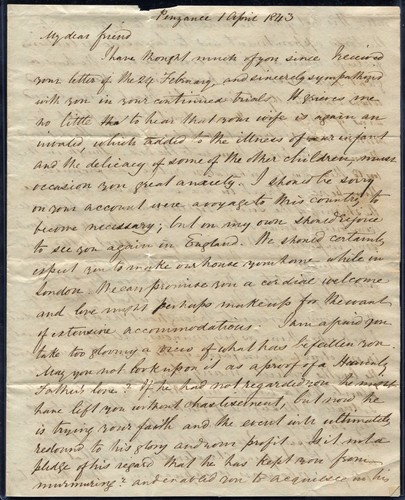 Penzance 1 April 1843
My dear friend
I have thought much of you since I received
your letter of the 24 February, and sincerely sympathized
with you in your continued trials. It grieves me
no little to hear that your wife is again an
invalid, which added to the illness of your infant
and the delicacy of some of the other children, must
occasion you great anxiety. I should be sorry
on your account were a voyage to this country to
become necessary; but on my own should rejoice
to see you again in England. We should certainly
expect you to make our house your home while in
London. We can promise you a cordial welcome
and love might perhaps make up for the want
of extensive accommodations. I am afraid you
take too gloomy a view of what has befallen you.
May you not look upon it as a proof of a Heavenly
Father's love? If he had not regarded you he must
have left you without chastisement, but now he
is trying your faith and the result will ultimately
redound to his glory and your profit. Is it not a
pledge of his regard that he has kept you from
murmuring? and enabled you to acquiesce in his